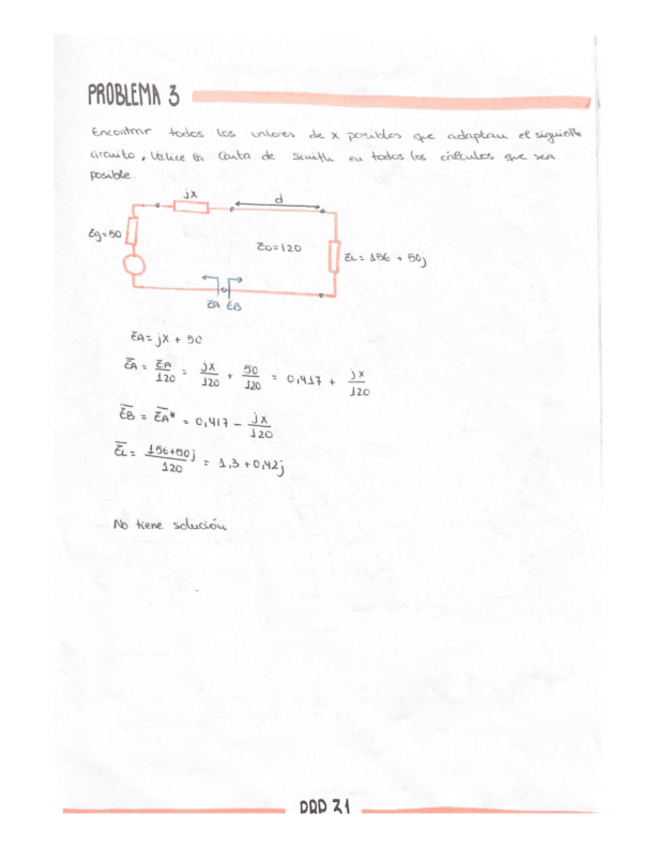 PROBLEMA 3
Encontrar todos los valores de x posibles que adaptan el siguiente
circuito, Utilice la Carta de Smith en todos los cálculos que sea
posible.
jX
d
Zg=50
Zo=120
ZL= 156 + 50j
ZA ZB
ZA= jX + 50
Z̅A = ZA/120 = jX/120 + 50/120 = 0,417 + jX/120
Z̅B = Z̅A* = 0,417 - jX/120
Z̅L = 156+50j/120 = 1,3 + 0,42j
No tiene solución